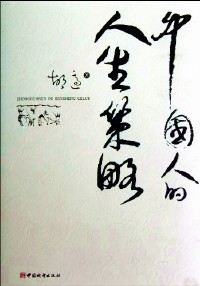 中國人的
人生策略
胡适 著
ZHONGGUOREN DE RENSHENG CELUE
中国城市出版社